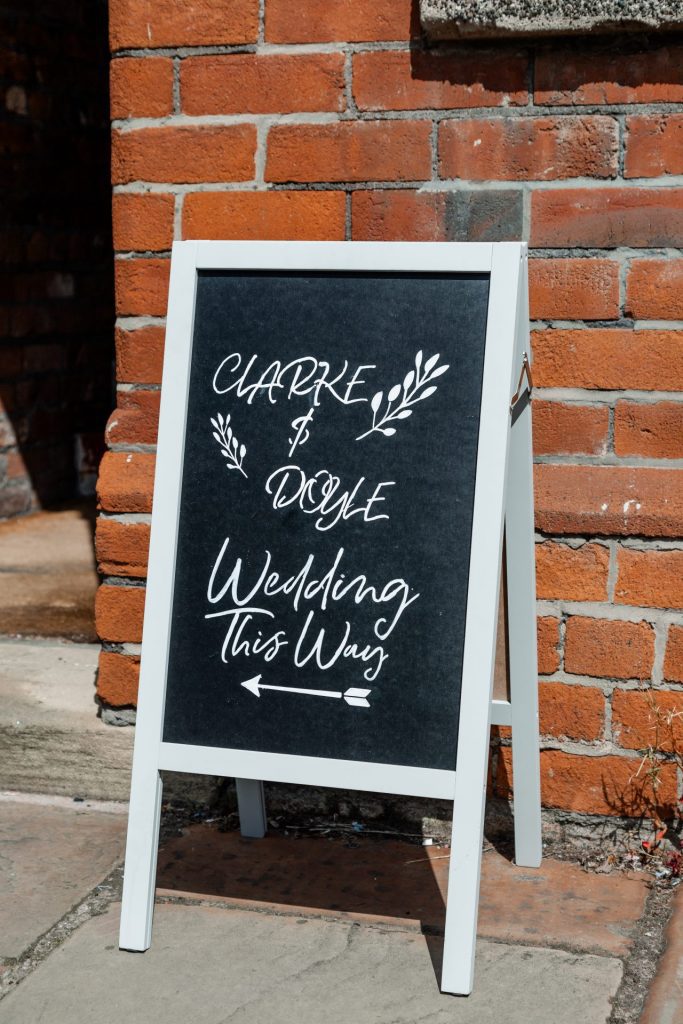 CLARKE
&
DOYLE
Wedding
This Way